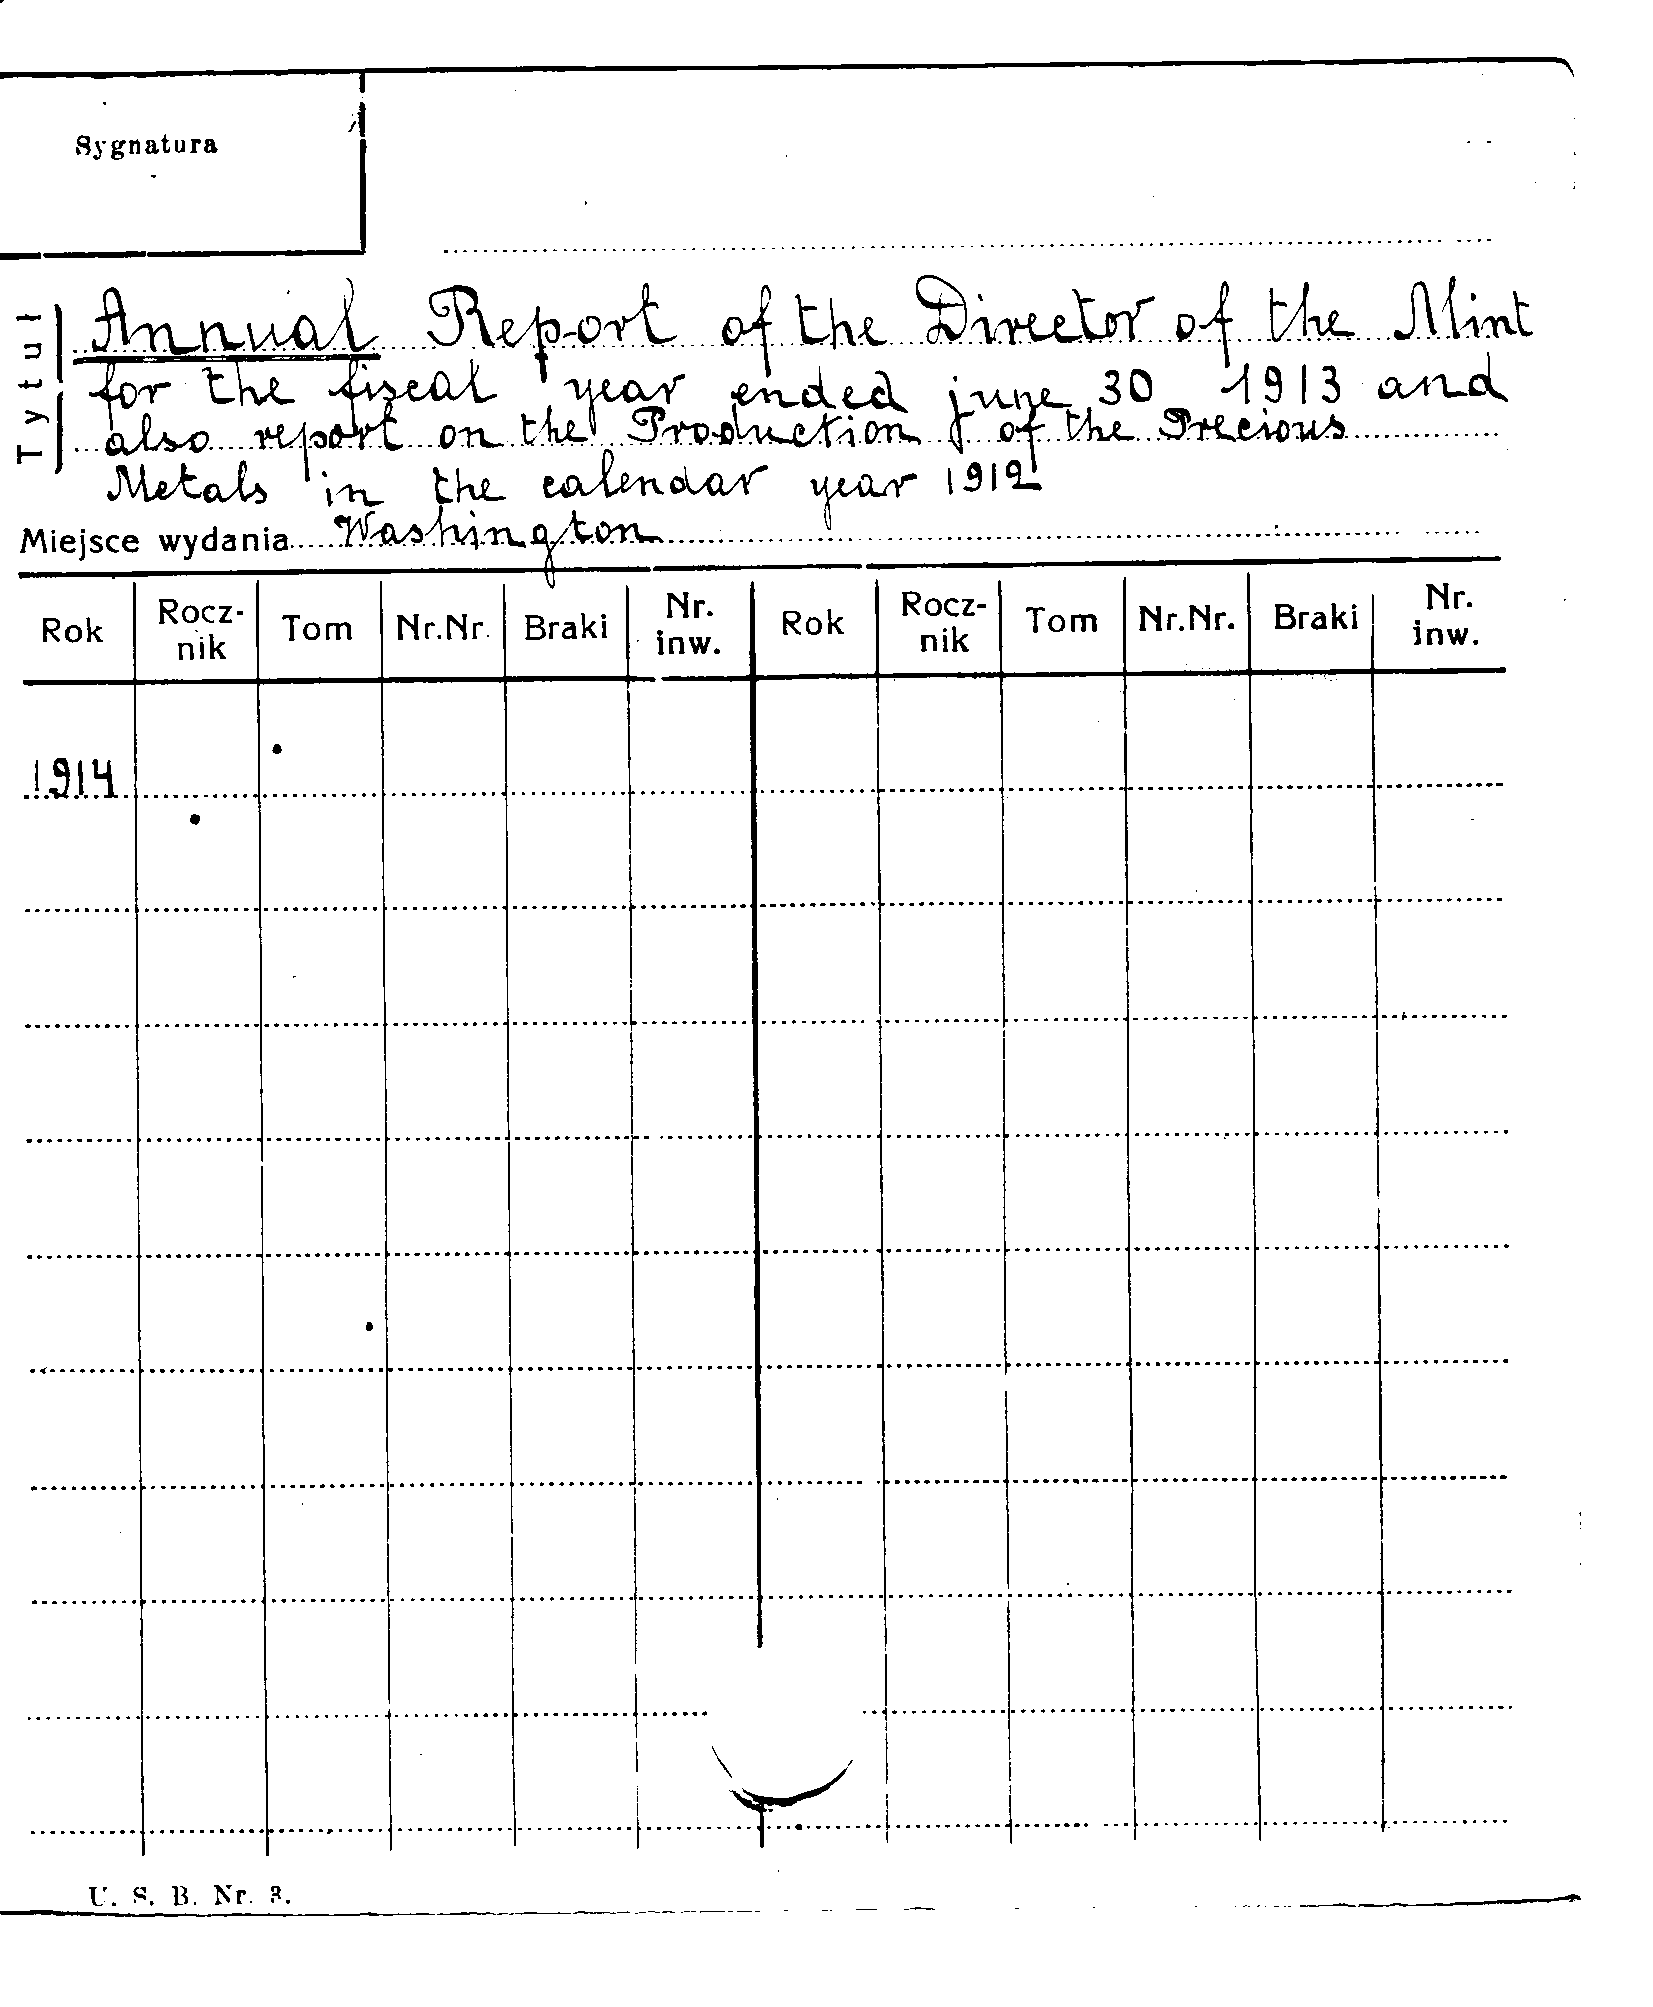 Sygnatura
Tytuł
Annual Report of the Director of the Mint
for the fiscal year ended june 30 1913 and
also report on the Production of the Precious
Metals in the calendar year 1912
Miejsce wydania Washington
Rok Rocz-nik Tom Nr.Nr. Braki Nr. inw. Rok Rocz-nik Tom Nr.Nr. Braki Nr. inw.
1914
U. S. B. Nr. 3.